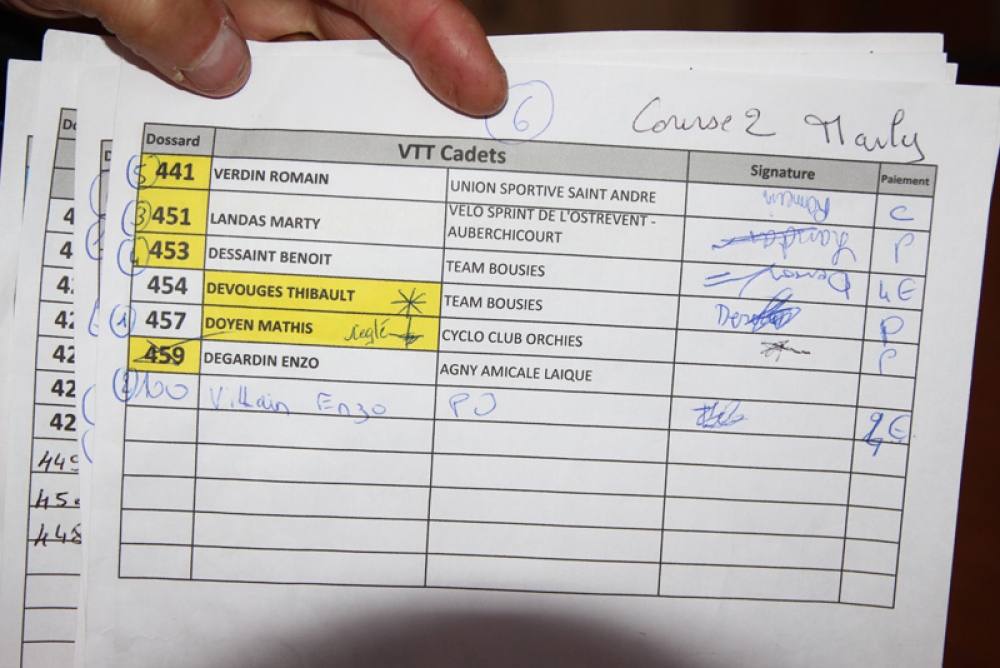 6 Course 2 Marly
Dossard VTT Cadets Signature Paiement
5 441 VERDIN ROMAIN UNION SPORTIVE SAINT ANDRE Romain C
3 451 LANDAS MARTY VELO SPRINT DE L'OSTREVENT - AUBERCHICOURT Landas P
4 453 DESSAINT BENOIT TEAM BOUSIES 4E
454 DEVOUGES THIBAULT TEAM BOUSIES P
1 457 DOYEN MATHIS reglé CYCLO CLUB ORCHIES P
459 DEGARDIN ENZO AGNY AMICALE LAIQUE
100 Villain Enzo PO
4
4
42
42
42
42
449
448